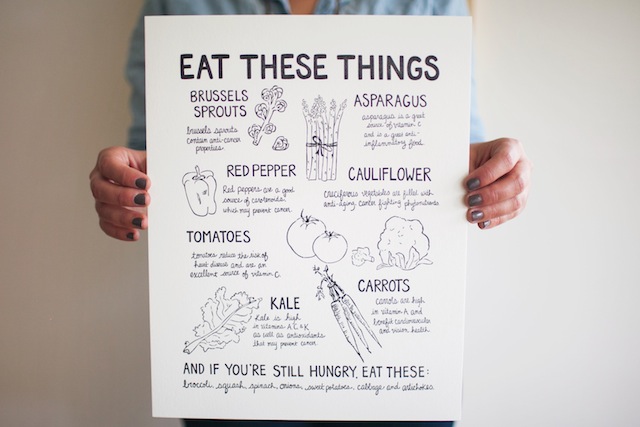 EAT THESE THINGS
BRUSSELS
SPROUTS
brussels sprouts
contain anti-cancer
properties.
ASPARAGUS
asparagus is a great
source of vitamin C
and is a great anti-
inflammatory food.
RED PEPPER
Red peppers are a good
source of carotenoids,
which may prevent cancer.
CAULIFLOWER
cruciferous vegetables are filled with
anti-aging, cancer fighting phytonutrients.
TOMATOES
tomatoes reduce the risk of
heart disease and are an
excellent source of vitamin C.
KALE
Kale is high
in vitamins A, C, & K
as well as antioxidants
that may prevent cancer.
CARROTS
carrots are high
in vitamin A and
benefit cardiovascular
and vision health.
AND IF YOU'RE STILL HUNGRY, EAT THESE:
broccoli, squash, spinach, onions, sweet potatoes, cabbage and artichokes.